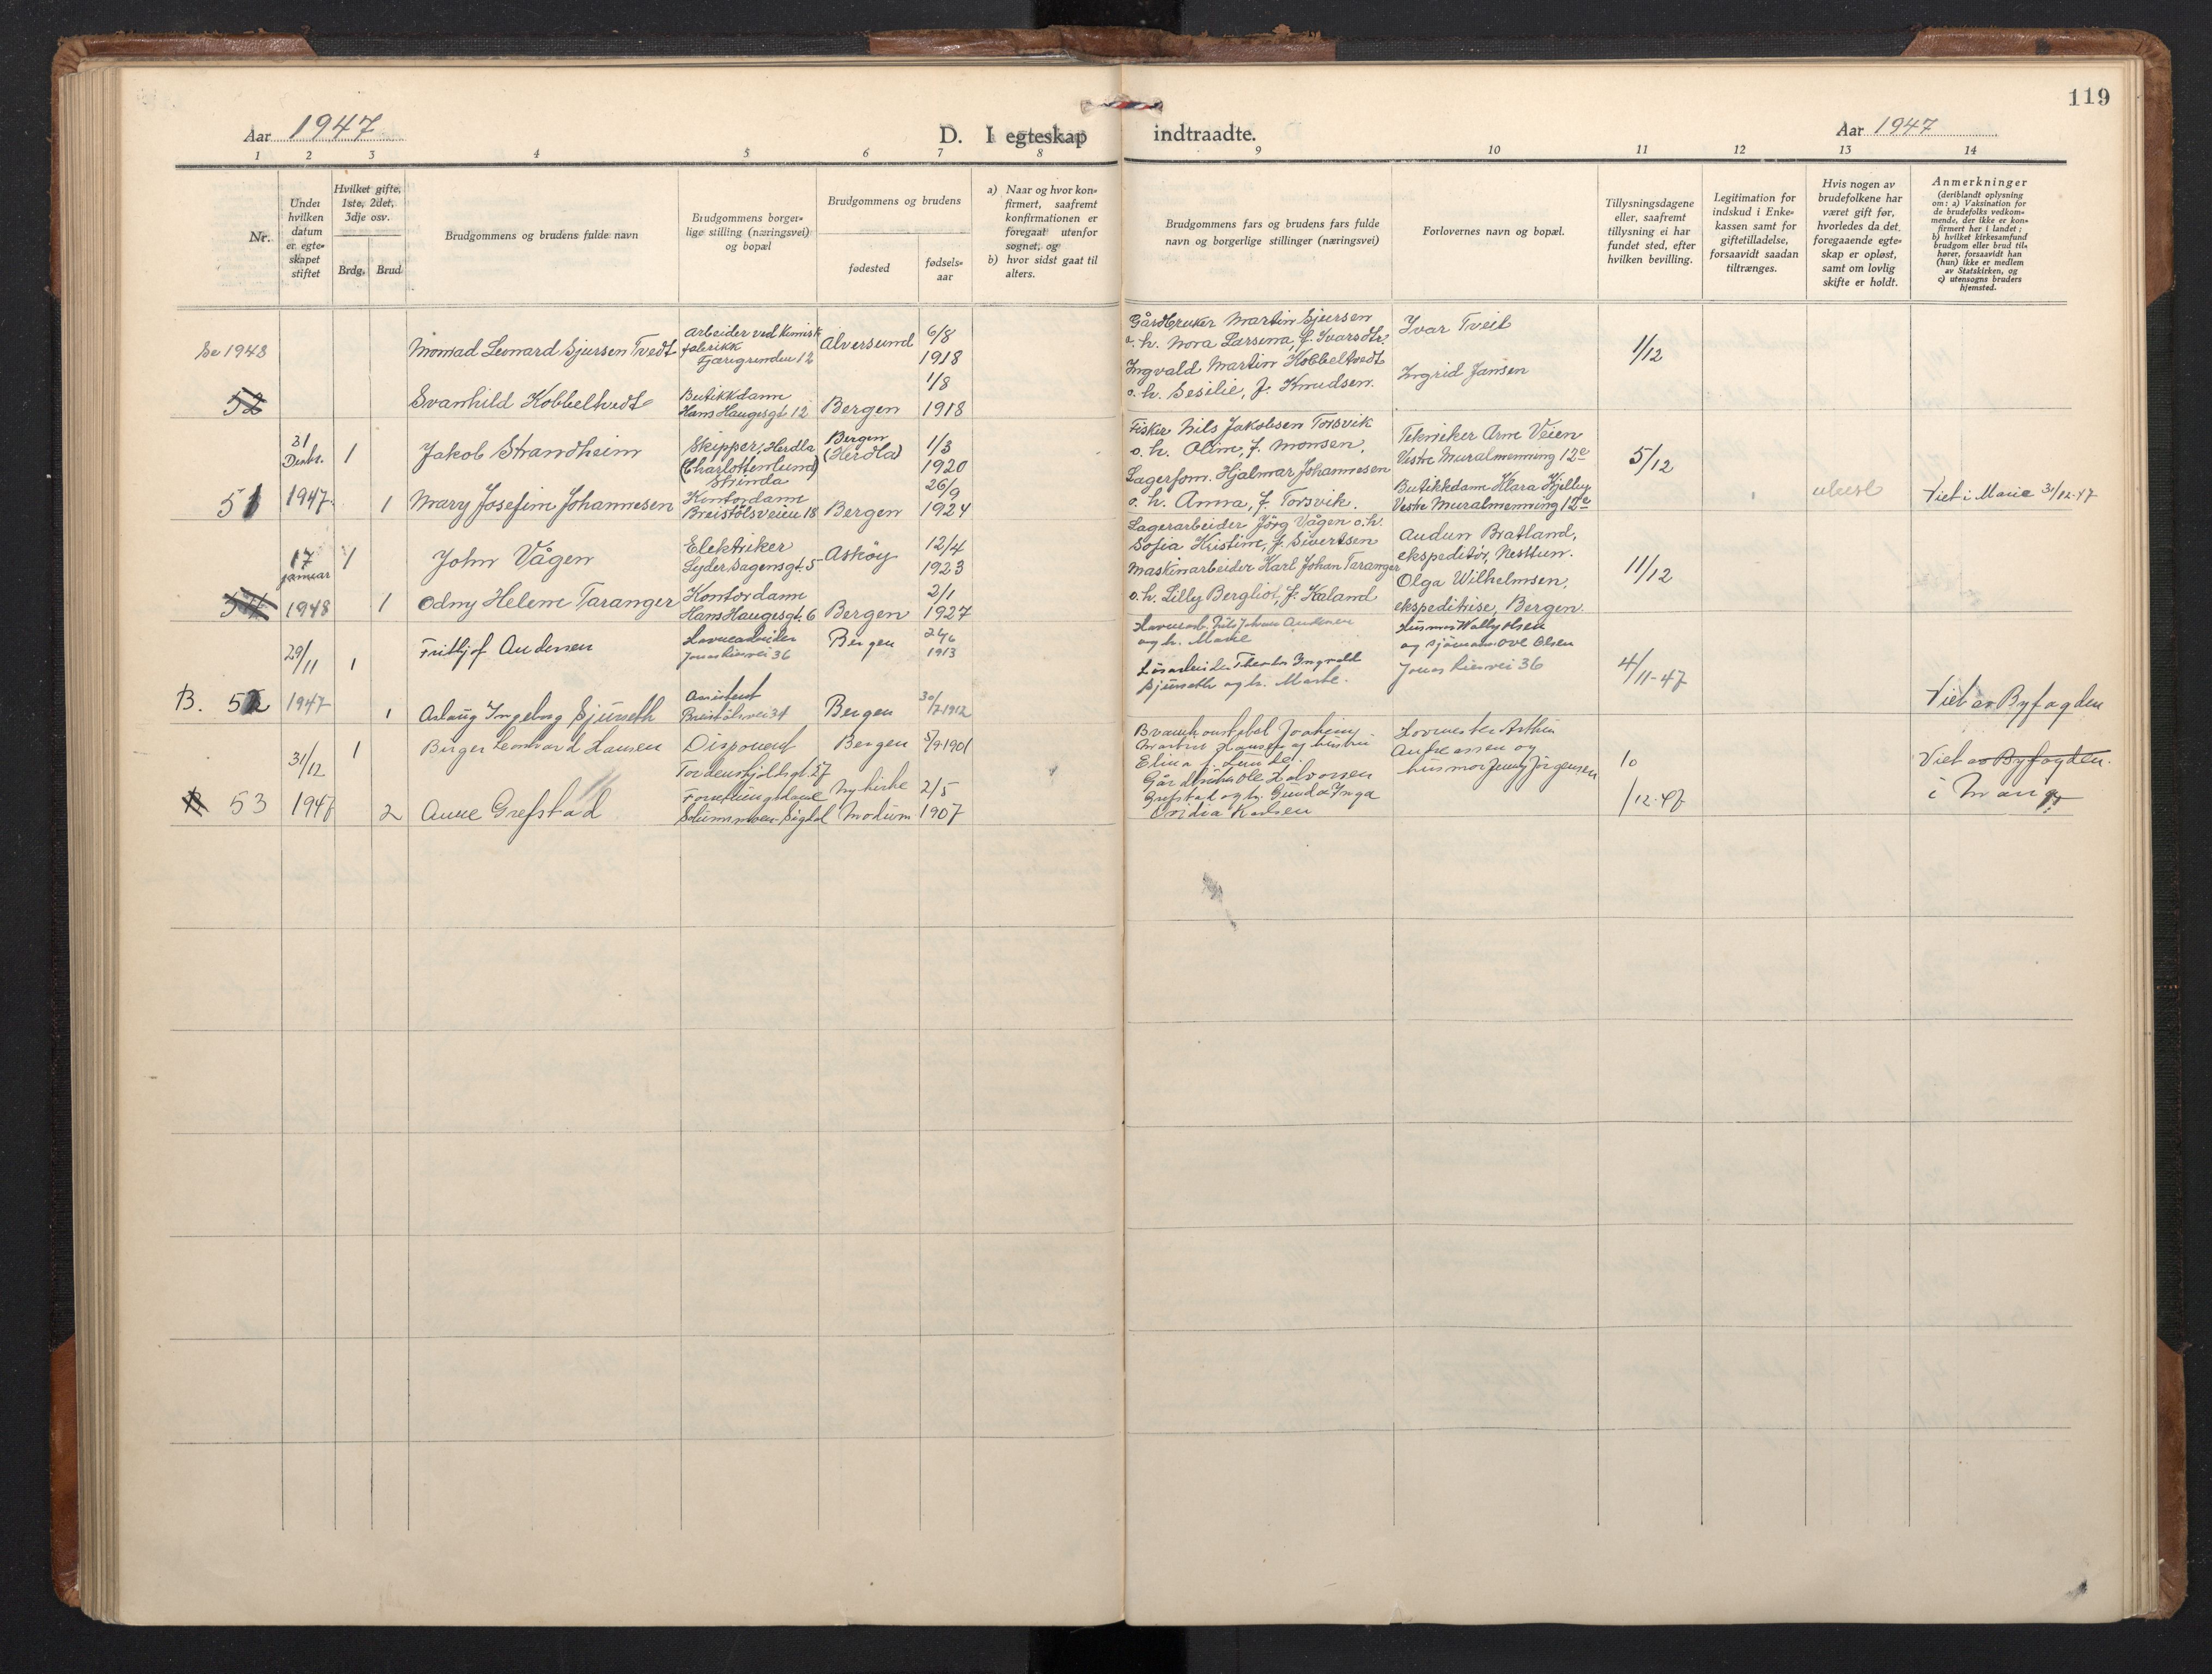 119
Aar 1947
D. I egteskap indtraadte.
Aar 1947
1 2 3 4 5 6 7 8 9 10 11 12 13 14
Nr.
Under
hvilken
datum
er egte-
skapet
stiftet
Hvilket gifte,
1ste, 2det,
3dje osv.
Brdg. Brud
Brudgommens og brudens fulde navn
Brudgommens borger-
lige stilling (næringsvei)
og bopæl
Brudgommens og brudens
fødested
fødsels-
aar
a) Naar og hvor kon-
firmert, saafremt
konfirmationen er
foregaat utenfor
sognet, og
b) hvor sidst gaat til
alters.
Brudgommens fars og brudens fars fulde
navn og borgerlige stillinger (næringsvei)
Forlovernes navn og bopæl.
Tillysningsdagene
eller, saafremt
tillysning ei har
fundet sted, efter
hvilken bevilling.
Legitimation for
indskud i Enke-
kassen samt for
giftetilladelse,
forsaavidt saadan
tiltrænges.
Hvis nogen av
brudefolkene har
været gift før,
hvorledes da det
foregaaende egte-
skap er opløst,
samt om lovlig
skifte er holdt.
Anmerkninger
(deriblandt oplysning
om: a) Vaksination for
de brudefolks vedkom-
mende, der ikke er kon-
firmert her i landet;
b) hvilket kirkesamfund
brudgom eller brud til-
hører, forsaavidt han
(hun) ikke er medlem
av Statskirken, og
c) utensogns bruders
hjemsted.
Se 1948
52
Monrad Leonard Sjursen Tvedt
Arbeider ved kemisk
fabrikk
Alversund
6/8
1918
Svanhild Kobbeltvedt
Butikkdame
Hans Haugesgt 12
Bergen
1/8
1918
Gårdbruker Martin Sjursen
o. h. Nora Larsina, f. Ivarsdtr.
Ingvald Martin Kobbeltvedt
o. h. Sesilie, f. Knudsen.
Ivar Tveit
Ingrid Jansen
1/12
51
31
Desbr.
1947.
1
Jakob Strandheim
Skipper, Herdla
(Charlottenlund)
Strinda
Bergen
(Herdla)
1/3
1920
1
Mary Josefine Johannesen
Kontordame
Breistølsveien 18
Bergen
26/9
1924
Fisker Nils Jakobsen Torsvik
o. h. Oline, f. Monsen,
Lagerfom. Hjalmar Johannesen
o. h. Anna, f. Torsvik.
Tekniker Arne Veien
Vestre Muralmenning 12e
Butikkdame Klara Kjelby
Vestre Muralmenning 12e
5/12
Viet i Marie 31/12-47
54
17
januar
1948
1
John Vågen
Elektriker
Lyder Sagensgt. 5
Askøy
12/4
1923
1
Odny Helene Taranger
Kontordame
Hans Haugesgt. 6
Bergen
2/1
1927
Lagerarbeider Jörg Vågen o. h.
Sofia Kristine, f. Sivertsen
Maskinarbeider Karl Johan Taranger
o. h. Lilly Bergliot, f. Kaland
Audun Bratland,
ekspeditør, Nesttun.
Olga Wilhelmsen,
ekspeditrise, Bergen.
11/12
B. 52
29/11
1947
1
Frithjof Andersen
Havnearbeider
Jonas Liesvei 36
Bergen
24/6
1913
1
Aslaug Ingeborg Sjurseth
Assistent
Breistølsvei 31
Bergen
30/7 1912
Havnearb. Nils Johan Andersen
og h. Marie
Løsarbeider Theodor Ingvald
Sjurseth og h. Marte.
Husmor Wally Olsen
og sjømann Ove Olsen
Jonas Liesvei 36
4/11-47
Viet av Byfogden
53
31/12
1947
1
Birger Leonhard Hansen
Disponent
Tordenskjoldsgt. 57
Bergen
5/9-1901
2
Anne Grefstad
Forretningsdame
Nykirke
Modum
2/5
1907
Brannkonstabel Joakim
Hansen og hustru
Elina f. Lunde.
Gårdbruker Ole Halvorsen
Grefstad og h. Gunda Inga
Karlsen
Andreassen og
husmor Jenny Jørgensen
10
/12-47
Viet av Byfogden.
i Mang